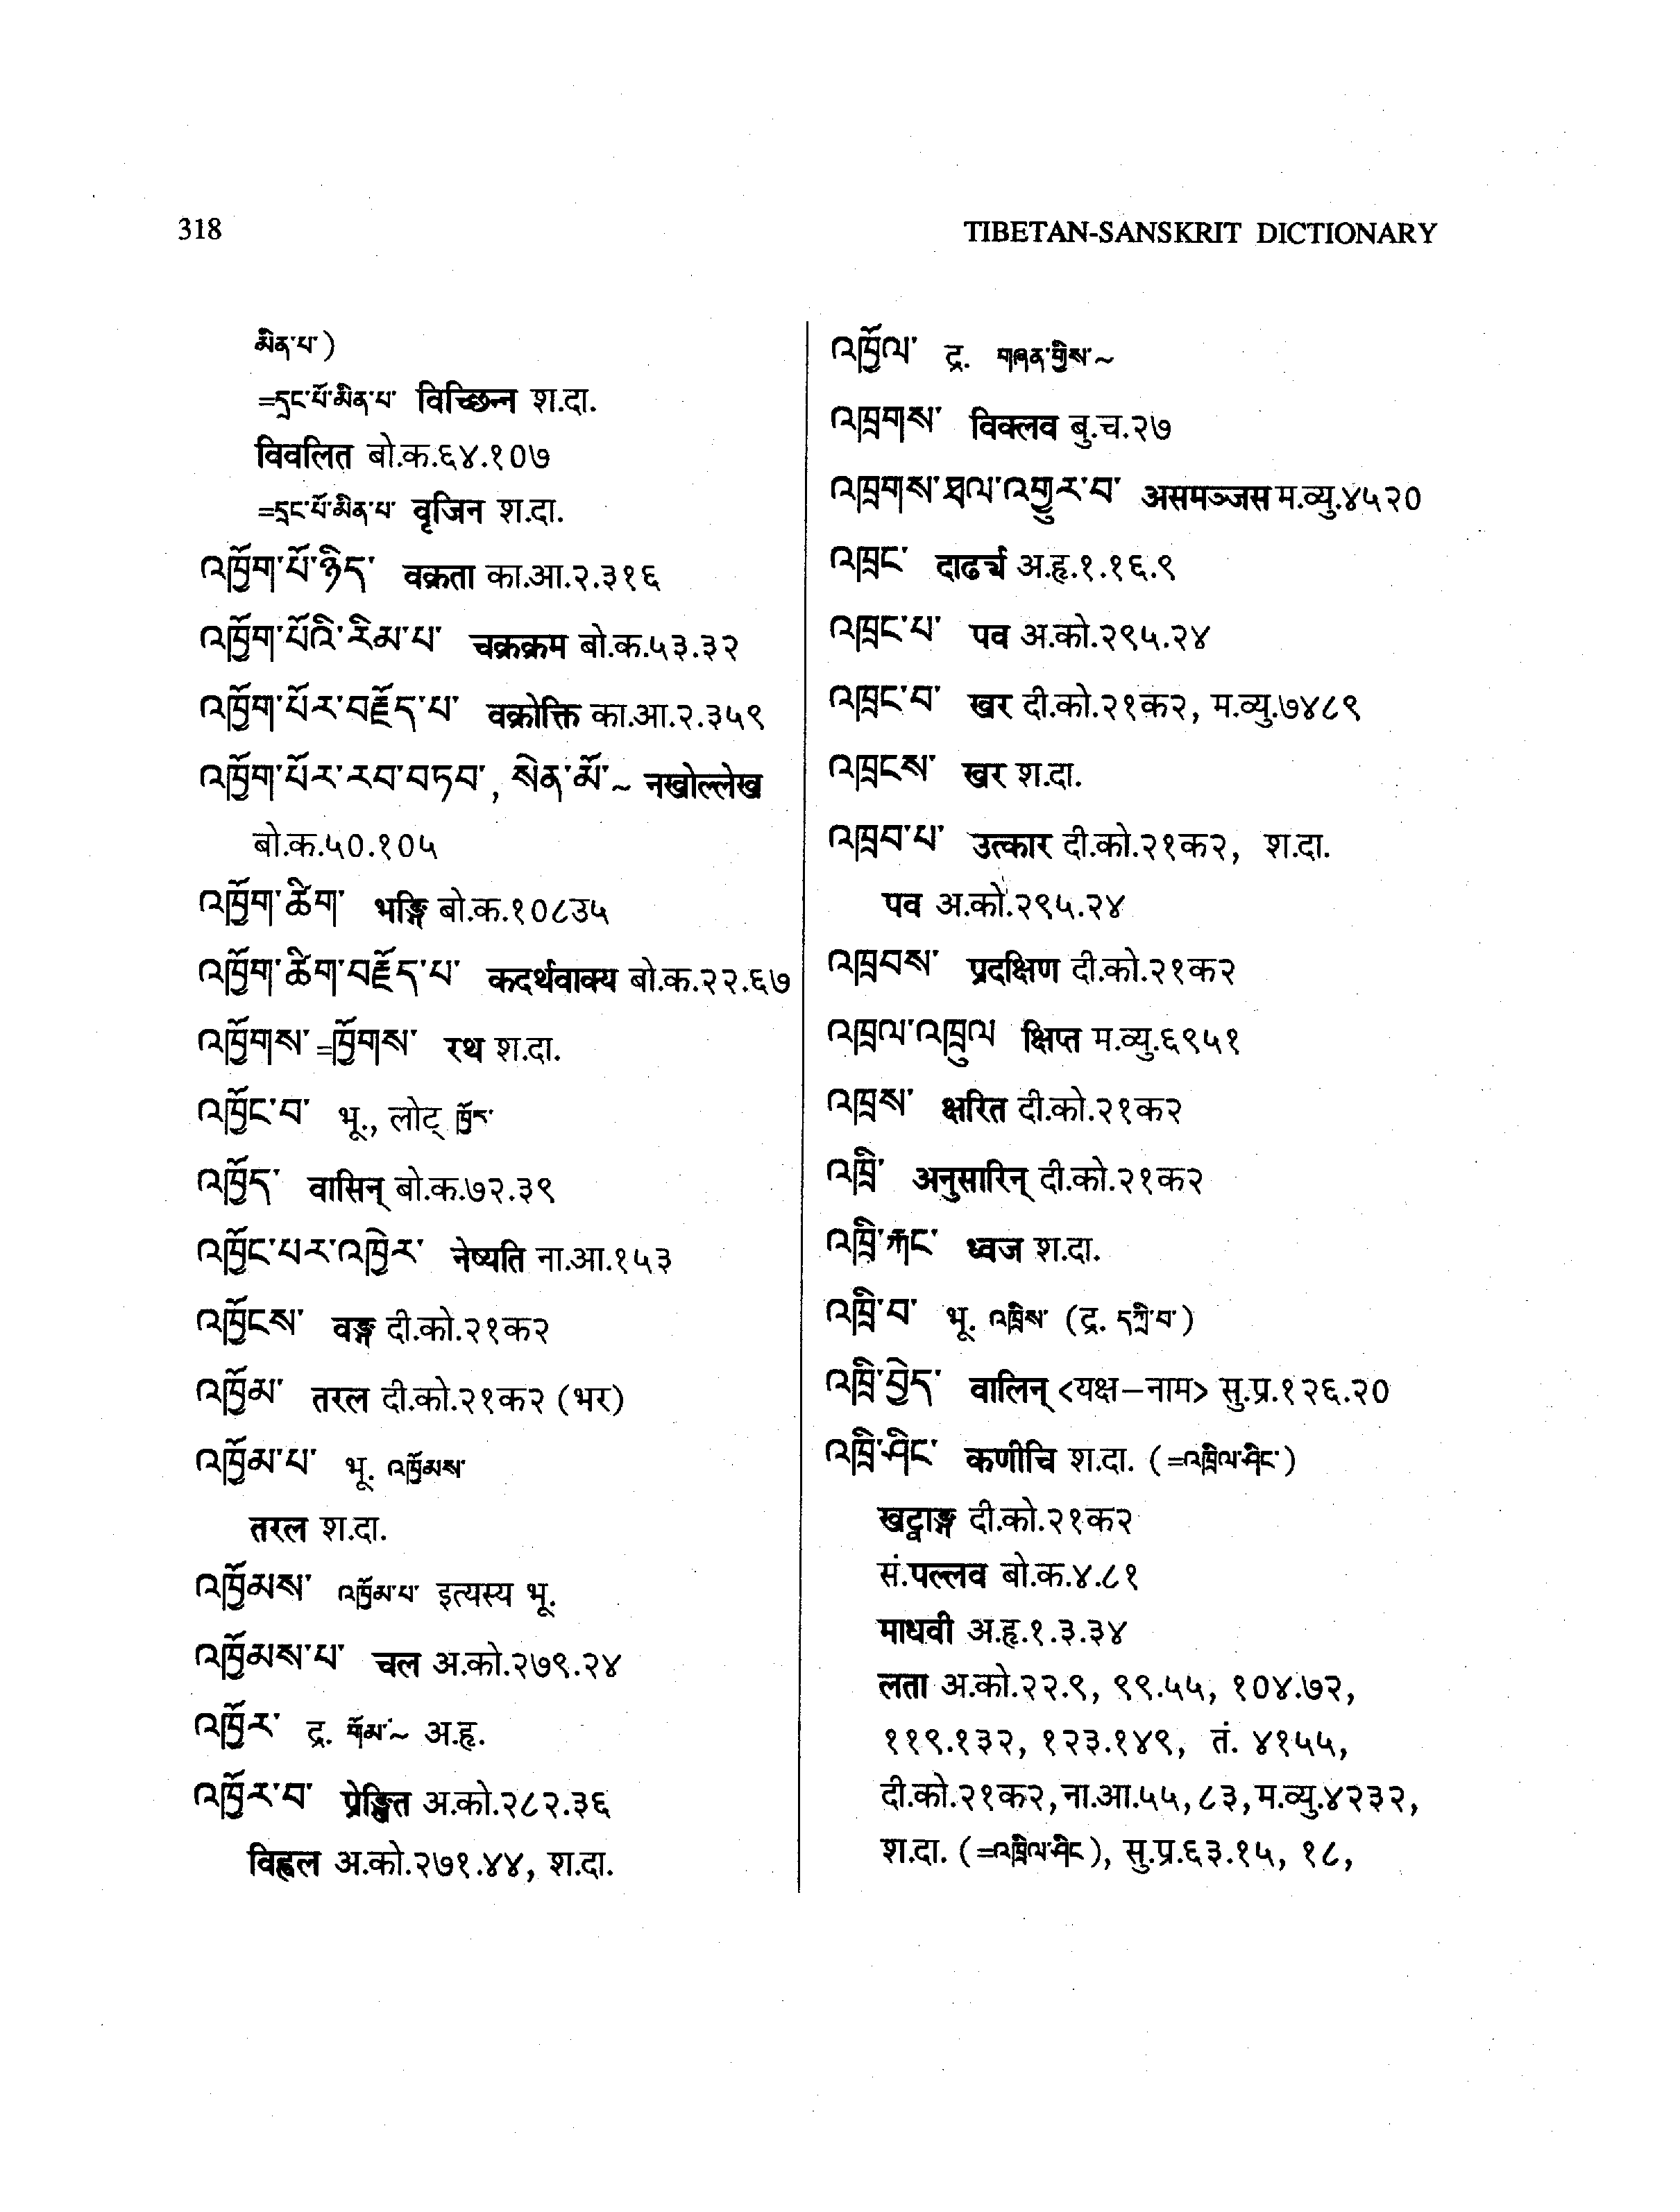 318
TIBETAN-SANSKRIT DICTIONARY
མིན་པ་)
=དྲང་པོ་མིན་པ་ विच्छिन्न श.दा.
विवलित बो.क.६४.१०७
=དྲང་པོ་མིན་པ་ वृजिन श.दा.
འཁྱོག་པོ་ཉིད་ वक्रता का.आ.२.३१६
འཁྱོག་པོའི་རིམ་པ་ चक्रक्रम बो.क.५३.३२
འཁྱོག་པོར་བརྗོད་པ་ वक्रोक्ति का.आ.२.३५९
འཁྱོག་པོར་རབ་བཏབ་, སེན་མོ་~ नखोल्लेख
बो.क.५०.१०५
འཁྱོག་ཚིག་ भङ्गि बो.क.१०८उ५
འཁྱོག་ཚིག་བརྗོད་པ་ कदर्थवाक्य बो.क.२२.६७
འཁྱོགས་=ཁྱོགས་ रथ श.दा.
འཁྱོང་བ་ भू., लोट् ཁྱོར་
འཁྱོད་ वासिन् बो.क.७२.३९
འཁྱོང་པར་འཁྱེར་ नेष्यति ना.आ.१५३
འཁྱོངས་ वङ्ग दी.को.२१क२
འཁྱོམ་ तरल दी.को.२१क२ (भर)
འཁྱོམ་པ་ भू. འཁྱོམས་
तरल श.दा.
འཁྱོམས་ འཁྱོམ་པ་ इत्यस्य भू.
འཁྱོམས་པ་ चल अ.को.२७९.२४
འཁྱོར་ द्र. གོམ་~ अ.हृ.
འཁྱོར་བ་ प्रेङ्खित अ.को.२८२.३६
विह्वल अ.को.२७१.४४, श.दा.
འཁྱོལ་ द्र. གཞན་གྱིས་~
འཁྲགས་ विक्लव बु.च.२७
འཁྲགས་ཐལ་འགྱུར་བ་ असमञ्जस म.व्यु.४५२०
འཁྲང་ दाढर्च अ.हृ.१.१६.९
འཁྲང་པ་ पव अ.को.२९५.२४
འཁྲང་བ་ खर दी.को.२१क२, म.व्यु.७४८९
འཁྲངས་ खर श.दा.
འཁྲབ་པ་ उत्कार दी.को.२१क२, श.दा.
पव अ.को.२९५.२४
འཁྲབས་ प्रदक्षिण दी.को.२१क२
འཁྲལ་འཁྲུལ क्षिप्त म.व्यु.६९५१
འཁྲས་ क्षरित दी.को.२१क२
འཁྲི་ अनुसारिन् दी.को.२१क२
འཁྲི་རྐང་ ध्वज श.दा.
འཁྲི་བ་ भू. འཁྲིས་ (द्र. དཀྲི་བ་)
འཁྲི་བྱེད་ वालिन् <यक्ष–नाम> सु.प्र.१२६.२०
འཁྲི་ཤིང་ कणीचि श.दा. (=འཁྲིལ་ཤིང་)
खट्वाङ्ग दी.को.२१क२
सं.पल्लव बो.क.४.८१
माधवी अ.हृ.१.३.३४
लता अ.को.२२.९, ९९.५५, १०४.७२,
११९.१३२, १२३.१४९, तं. ४१५५,
दी.को.२१क२, ना.आ.५५, ८३, म.व्यु.४२३२,
श.दा. (=འཁྲིལ་ཤིང), सु.प्र.६३.१५, १८,